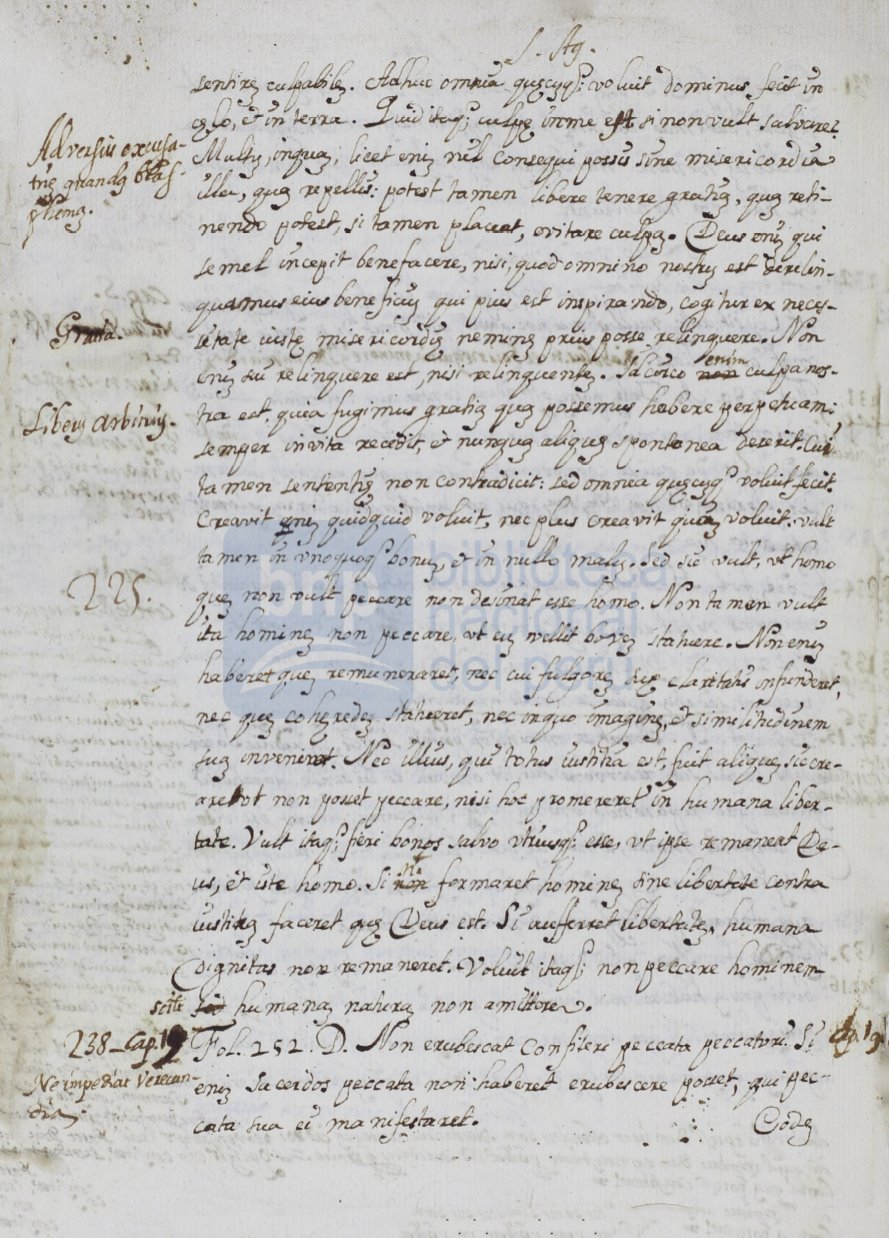 S. Ag.
sentire culpabile. Adhuc omnia quęcuq; voluit dominus fecit in
cęlo, et in terra. Quid itaq; culpę in me est si non vult salvare?
Adversus excusa-
trię quandę blas-
phemę.
Multę, inquaȝ, licet eniȝ nil consequi possis sine misericordia
illa, quaȝ repellis: potest tamen libere tenere gratiȝ, quaȝ reti-
nendo potest, si tamen placeat, evitare culpaȝ. Deus eniȝ qui
semel incepit benefacere, nisi, quod omnino nostruȝ est derelin-
quamus eius beneficiuȝ qui pius est inspirando, cogitur ex neces-
Gratia.
sitate iustę misericordię neminȝ prius posse relinquere. Non
eniȝ suȝ relinquere est, nisi relinquenteȝ. Idcirco non enim culpa nos-
Liberȝ arbitriȝ.
tra est quia fugimus gratiȝ quaȝ possemus habere perpetuam:
semper invita recedit, et nunquaȝ aliqueȝ spontanea deserit. Cui
tamen sententiȝ non contradicit: sed omnia quęcuq; voluit fecit.
Creavit eniȝ quidquid voluit, nec plus creavit quaȝ voluit. vult
tamen in vnoquoq; bonuȝ, et in nullo maluȝ. Sed sic vult, vt homo
225.
queȝ non vult peccare non desinat esse homo. Non tamen vult
ita homineȝ non peccare, vt eȝ vellit boveȝ statuere. Non eniȝ
haberet queȝ remuneraret, nec cui fulgoreȝ suę claritatis infunderet,
nec queȝ cohęredeȝ statueret, nec in quo imagineȝ, et similitudinem
suaȝ inveniret. Nec illius, qui totus iustitia est, fuit aliqueȝ sic cre-
are vt non posset peccare, nisi hoc promereret in humana liber-
tate. Vult itaq; fieri bonos salvo vtriusq; esse, vt ipse remaneat De-
us, et iste homo. Si non formaret hominȝ sine libertate contra
iustitiȝ faceret quę Deus est. Si aufferret libertateȝ, humana
dignitas non remaneret. Voluit itaq; non peccare hominem
scite sed humanaȝ naturaȝ non amittere.
238_Cap. 19
Fol. 252. D. Non erubescat confiteri peccata peccatori. Si
Cap. 19
Ne impediat verecun-
dia.
eniȝ Sacerdos peccata non haberet erubescere posset, qui pec-
cata sua ei manifestaret.
Codȝ
bnp
biblioteca
nacional
del perú